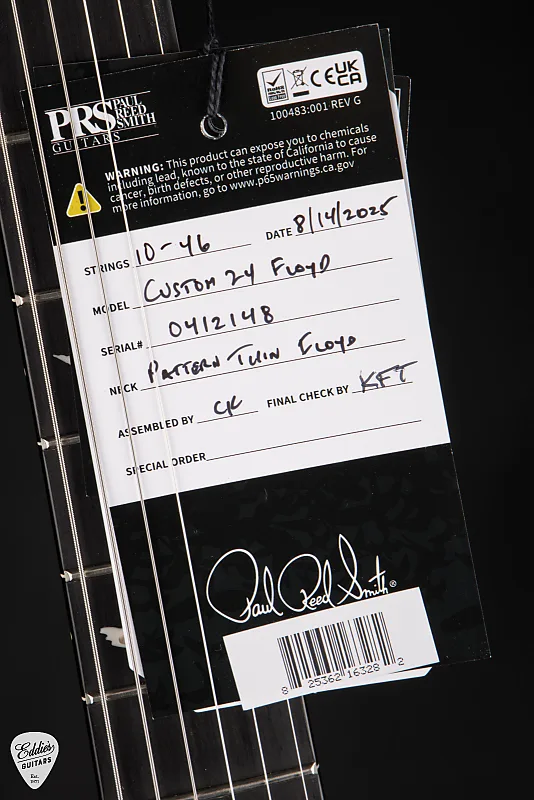 PRS PAUL
REED
SMITH
GUITARS
RoHS
CE UK
CA
100483:001 REV G
WARNING: This product can expose you to chemicals
including lead, known to the state of California to cause
cancer, birth defects, or other reproductive harm. For
more information, go to www.p65warnings.ca.gov
STRINGS 10-46 DATE 8/14/2025
MODEL CUSTOM 24 FLOYD
SERIAL# 0412148
NECK PATTERN THIN FLOYD
ASSEMBLED BY CK FINAL CHECK BY KFT
SPECIAL ORDER
Paul Reed Smith®
8 25362 16328 2
Eddie's
GUITARS
Est.